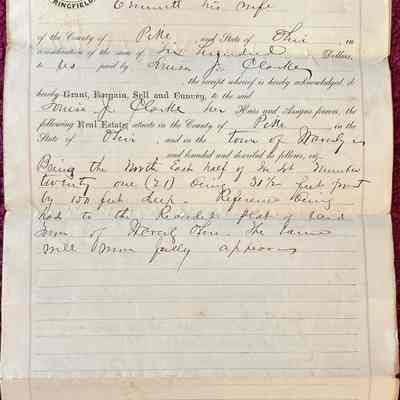 RINGFIELD
Emmitt his wife
of the County of Pike and State of Ohio, in
consideration of the sum of Six hundred Dollars,
to us paid by Louisa J. Clarke
the receipt whereof is hereby acknowledged, do
hereby Grant, Bargain, Sell and Convey, to the said
Louisa J. Clarke her Heirs and Assigns forever, the
following Real Estate, situate in the County of Pike, in the
State of Ohio, and in the town of Waverly
and bounded and described as follows, viz:
Being the North East half of In Lot Number
twenty one (21) being 30½ feet front
by 150 feet deep. Reference being
had to the Recorded plat of said
town of Waverly Ohio. The same
will more fully appear